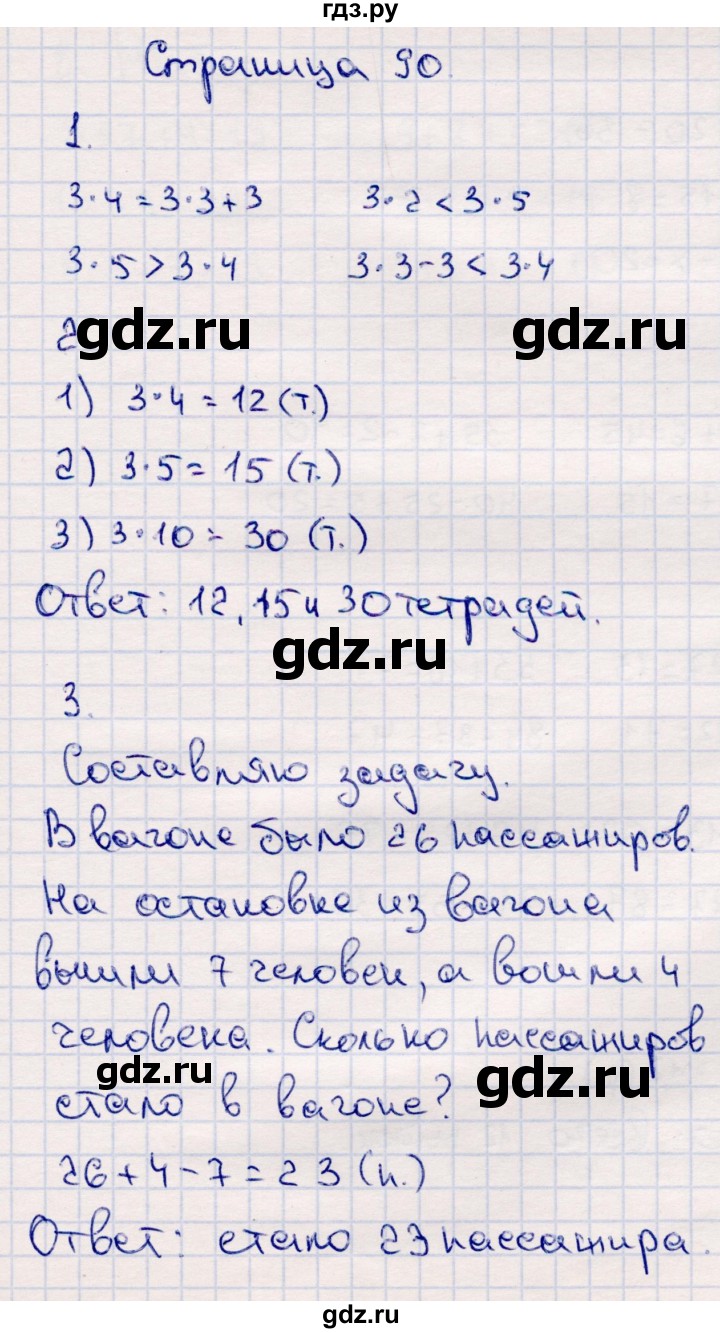 гдз.ру
Страница 90.
1.
3·4=3·3+3 3·2<3·5
3·5>3·4 3·3-3<3·4
2
gdz.ru gdz.ru
1) 3·4=12 (т.)
2) 3·5=15 (т.)
3) 3·10=30 (т.)
Ответ: 12, 15 и 30 тетрадей.
gdz.ru
3.
Составляю задачу.
В вагоне было 26 пассажиров.
На остановке из вагона
вышли 7 человек, а вошли 4
человека. Сколько пассажиров
gdz.ru gdz.ru
стало в вагоне?
26+4-7=23 (п.)
Ответ: стало 23 пассажира.
gdz.ru